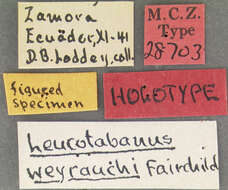 Zamora
Ecuador, XI-41
D.B. Laddey, coll.
M.C.Z.
Type
28703
figured
specimen
HOLOTYPE
Leucotabanus
weyrauchi Fairchild